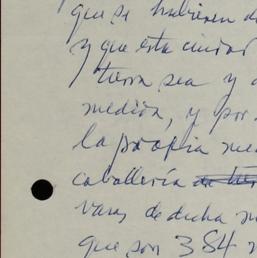 que se hubiesen d
y que esta ciudad
tierra sea y
medida, y por
la propia me
caballería
varas de dicha m
que son 384